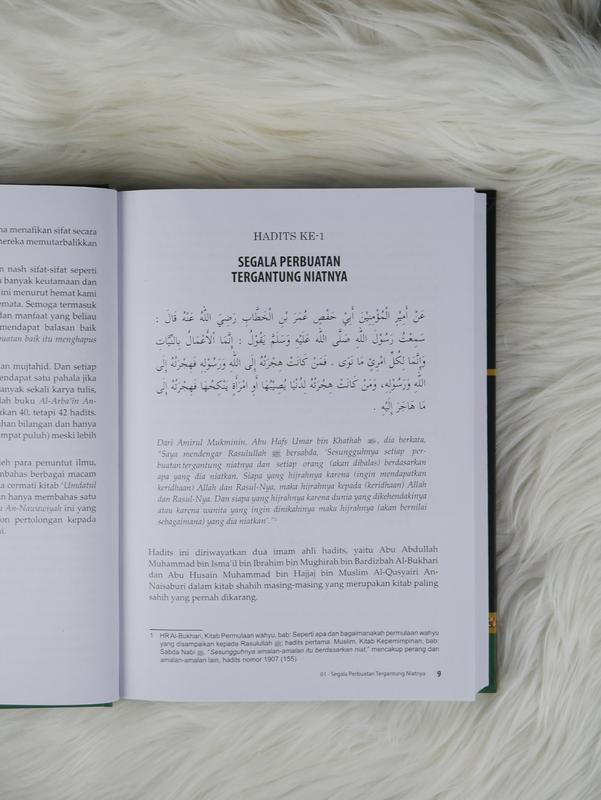 na menafikan sifat secara
mereka memutarbalikkan
n nash sifat-sifat seperti
banyak keutamaan dan
ini menurut hemat kami
mata. Semoga termasuk
dan manfaat yang beliau
mendapat balasan baik
buatan baik itu menghapus
an mujtahid. Dan setiap
endapat satu pahala jika
anyak sekali karya tulis,
lah buku Al-Arba'in An-
ukan 40, tetapi 42 hadits.
han bilangan dan hanya
mpat puluh) meski lebih
leh para penuntut ilmu,
mbahas berbagai macam
a cermati kitab 'Umdatul
n hanya membahas satu
n An-Nawawiyah ini yang
on pertolongan kepada
HADITS KE-1
SEGALA PERBUATAN
TERGANTUNG NIATNYA
عَنْ أَمِيْرِ الْمُؤْمِنِيْنَ أَبِيْ حَفْصٍ عُمَرَ بْنِ الْخَطَّابِ رَضِيَ اللَّهُ عَنْهُ قَالَ :
سَمِعْتُ رَسُوْلَ اللَّهِ صَلَّى اللَّهُ عَلَيْهِ وَسَلَّمَ يَقُوْلُ : إِنَّمَا الْأَعْمَالُ بِالنِّيَّاتِ
وَإِنَّمَا لِكُلِّ امْرِئٍ مَا نَوَى . فَمَنْ كَانَتْ هِجْرَتُهُ إِلَى اللَّهِ وَرَسُوْلِهِ فَهِجْرَتُهُ إِلَى
اللَّهِ وَرَسُوْلِهِ، وَمَنْ كَانَتْ هِجْرَتُهُ لِدُنْيَا يُصِيْبُهَا أَوِ امْرَأَةٍ يَنْكِحُهَا فَهِجْرَتُهُ إِلَى
مَا هَاجَرَ إِلَيْهِ .
Dari Amirul Mukminin, Abu Hafs Umar bin Khathab ؓ, dia berkata,
"Saya mendengar Rasulullah ﷺ bersabda, 'Sesungguhnya setiap per-
buatan tergantung niatnya dan setiap orang (akan dibalas) berdasarkan
apa yang dia niatkan. Siapa yang hijrahnya karena (ingin mendapatkan
keridhaan) Allah dan Rasul-Nya, maka hijrahnya kepada (keridhaan) Allah
dan Rasul-Nya. Dan siapa yang hijrahnya karena dunia yang dikehendakinya
atau karena wanita yang ingin dinikahinya maka hijrahnya (akan bernilai
sebagaimana) yang dia niatkan'."¹
Hadits ini diriwayatkan dua imam ahli hadits, yaitu Abu Abdullah
Muhammad bin Isma'il bin Ibrahim bin Mughirah bin Bardizbah Al-Bukhari
dan Abu Husain Muhammad bin Hajjaj bin Muslim Al-Qusyairi An-
Naisaburi dalam kitab shahih masing-masing yang merupakan kitab paling
sahih yang pernah dikarang.
1 HR Al-Bukhari, Kitab Permulaan wahyu, bab: Seperti apa dan bagaimanakah permulaan wahyu
yang disampaikan kepada Rasulullah ﷺ; hadits pertama. Muslim, Kitab Kepemimpinan, bab:
Sabda Nabi ﷺ, "Sesungguhnya amalan-amalan itu berdasarkan niat," mencakup perang dan
amalan-amalan lain, hadits nomor 1907 (155)
01 - Segala Perbuatan Tergantung Niatnya 9